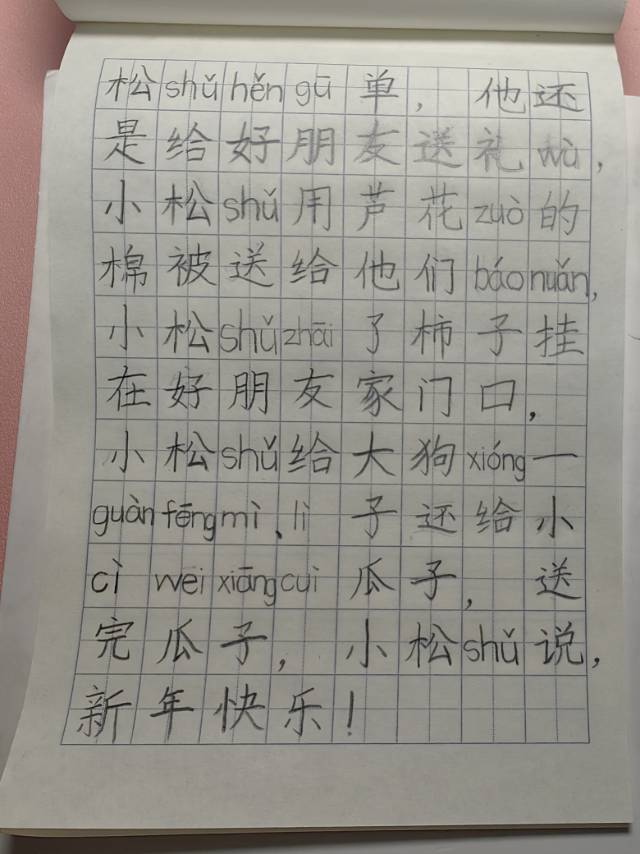 松shǔhěngū单，他还
是给好朋友送礼wù，
小松shǔ用芦花zuò的
棉被送给他们báonuǎn，
小松shǔzhāi了柿子挂
在好朋友家门口，
小松shǔ给大狗xióng一
guànfēngmì、lì子还给小
cì wei xiāngcuì瓜子，送
完瓜子，小松shǔ说，
新年快乐！